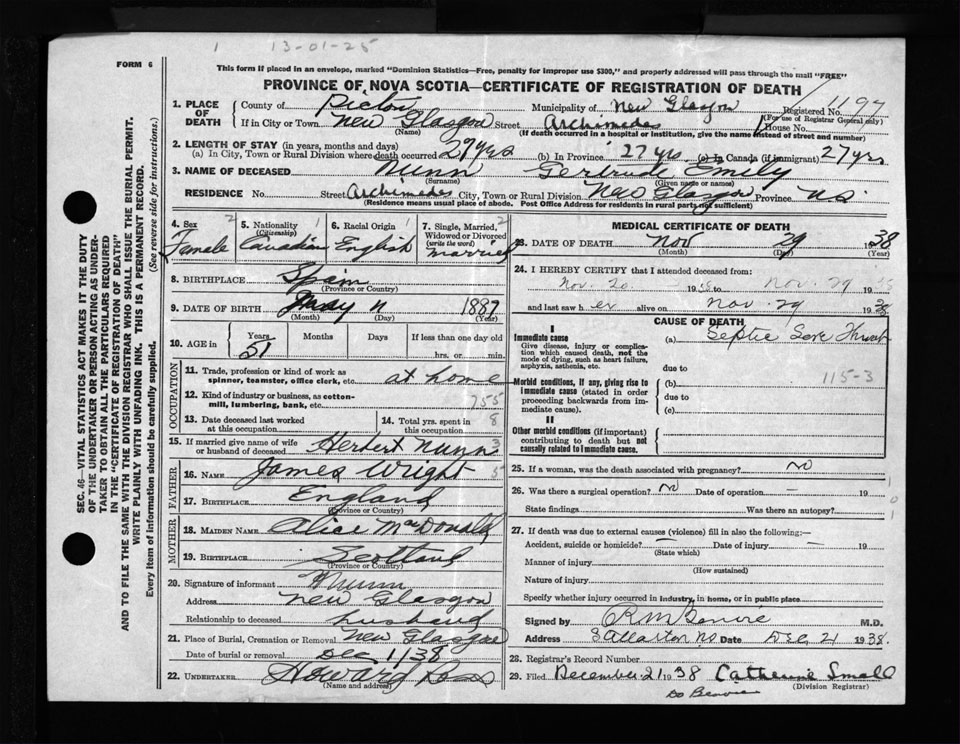 1 13-01-25
FORM 6
This form if placed in an envelope, marked "Dominion Statistics—Free, penalty for improper use $300," and properly addressed will pass through the mail "FREE"
PROVINCE OF NOVA SCOTIA—CERTIFICATE OF REGISTRATION OF DEATH
1. PLACE OF DEATH
County of Pictou Municipality of New Glasgow Registered No. 1197
(For use of Registrar General only)
If in City or Town New Glasgow Street Archimedes House No.
(Name) (If death occurred in a hospital or institution, give the name instead of street and number)
2. LENGTH OF STAY (in years, months and days)
(a) In City, Town or Rural Division where death occurred 27 yrs (b) In Province 27 yrs (c) In Canada (if immigrant) 27 yrs
3. NAME OF DECEASED Nunn Gertrude Emily
(Surname) (Given name or names)
RESIDENCE No. Street Archimedes City, Town or Rural Division New Glasgow Province NS
(Residence means usual place of abode. Post Office Address for residents in rural parts not sufficient)
4. Sex 2 Female
5. Nationality (Citizenship) 1 Canadian
6. Racial Origin 1 English
7. Single, Married, Widowed or Divorced (write the word) 2 Married
8. BIRTHPLACE Spain
(Province or Country)
9. DATE OF BIRTH May 11 1887
(Month) (Day) (Year)
10. AGE in Years 51 Months Days If less than one day old
hrs. or min.
OCCUPATION
11. Trade, profession or kind of work as spinner, teamster, office clerk, etc. at home
12. Kind of industry or business, as cotton-mill, lumbering, bank, etc. 755
13. Date deceased last worked at this occupation
14. Total yrs. spent in this occupation 8
15. If married give name of wife or husband of deceased Herbert Nunn 3
FATHER
16. NAME James Wright 5
17. BIRTHPLACE England
(Province or Country)
MOTHER
18. MAIDEN NAME Alice MacDonald
19. BIRTHPLACE Scotland
(Province or Country)
20. Signature of informant Nunn
Address New Glasgow
Relationship to deceased husband
21. Place of Burial, Cremation or Removal New Glasgow
Date of burial or removal Dec 1/38
22. UNDERTAKER Howard Ross
(Name and address)
MEDICAL CERTIFICATE OF DEATH
23. DATE OF DEATH Nov 29 1938
(Month) (Day) (Year)
24. I HEREBY CERTIFY that I attended deceased from:
Nov. 20 1938 to Nov. 29 19
and last saw her alive on Nov. 29 1938
CAUSE OF DEATH
I
Immediate cause
Give disease, injury or complication which caused death, not the mode of dying, such as heart failure, asphyxia, asthenia, etc.
(a) Septic Sore Throat
due to
115-3
Morbid conditions, if any, giving rise to immediate cause (stated in order proceeding backwards from immediate cause).
(b)
due to
(c)
II
Other morbid conditions (if important) contributing to death but not causally related to immediate cause.
25. If a woman, was the death associated with pregnancy? No
26. Was there a surgical operation? No Date of operation — 19
State findings Was there an autopsy?
27. If death was due to external causes (violence) fill in also the following:—
Accident, suicide or homicide? — Date of injury — 19
(State which)
Manner of injury
(How sustained)
Nature of injury
Specify whether injury occurred in industry, in home, or in public place
Signed by M.D.
Address Stellarton NS Date Dec 21 1938.
28. Registrar's Record Number
29. Filed December 21 1938 Catherine Small
(Division Registrar)
SEC. 46—VITAL STATISTICS ACT MAKES IT THE DUTY
OF THE UNDERTAKER OR PERSON ACTING AS UNDER-
TAKER TO OBTAIN ALL THE PARTICULARS REQUIRED
IN THE "CERTIFICATE OF REGISTRATION OF DEATH"
AND TO FILE THE SAME WITH THE DIVISION REGISTRAR WHO SHALL ISSUE THE BURIAL PERMIT.
WRITE PLAINLY WITH UNFADING INK. THIS IS A PERMANENT RECORD.
Every item of information should be carefully supplied. (See reverse side for instructions.)